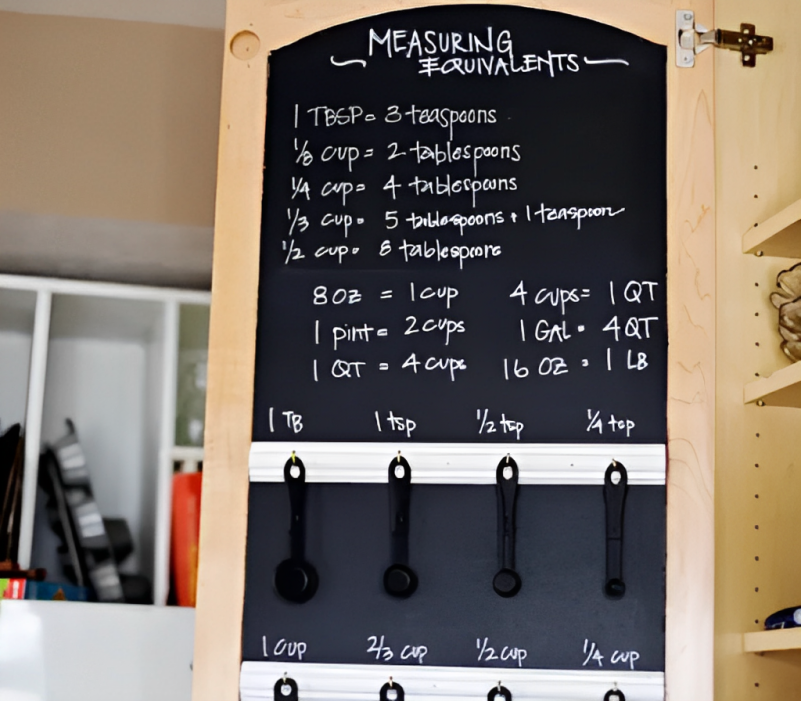 MEASURING
EQUIVALENTS
1 TBSP = 3 teaspoons
1/8 cup = 2 tablespoons
1/4 cup = 4 tablespoons
1/3 cup = 5 tablespoons + 1 teaspoon
1/2 cup = 8 tablespoons
8 OZ = 1 cup
4 cups = 1 QT
1 pint = 2 cups
1 GAL = 4 QT
1 QT = 4 cups
16 OZ = 1 LB
1 TB
1 tsp
1/2 tsp
1/4 tsp
1 cup
2/3 cup
1/2 cup
1/4 cup